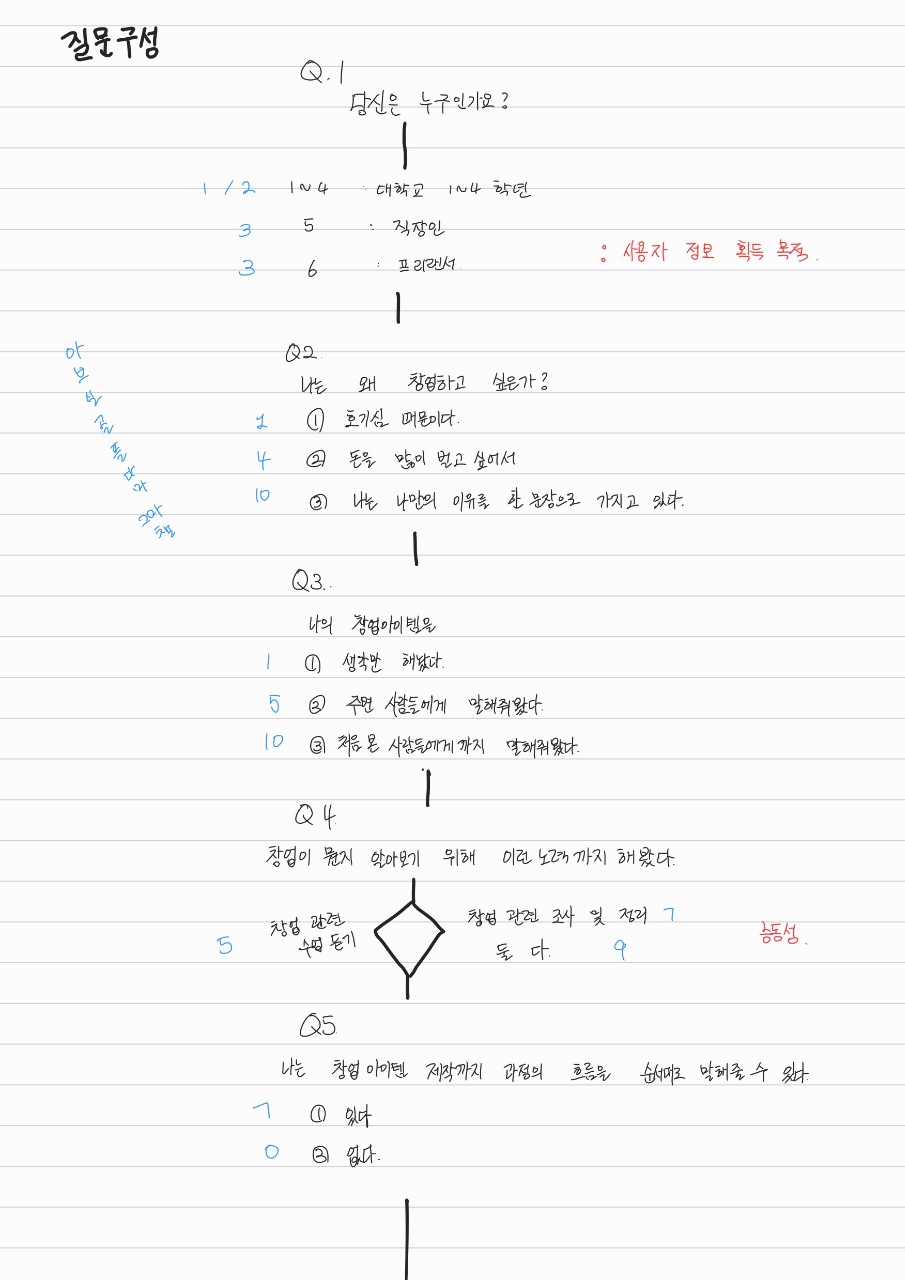 질문구성
Q.1
당신은 누구인가요?
1 / 2 1~4 : 대학교 1~4 학년
3 5 : 직장인
3 6 : 프리랜서
: 사용자 정보 획득 목적.
Q2.
나는 왜 창업하고 싶은가?
1 ① 호기심 때문이다.
4 ② 돈을 많이 벌고 싶어서
10 ③ 나는 나만의 이유를 한 문장으로 가지고 있다.
Q3.
나의 창업아이템을
1 ① 생각만 해봤다.
5 ② 주변 사람들에게 말해줘봤다.
10 ③ 처음 본 사람들에게까지 말해줘봤다.
Q4
창업이 뭔지 알아보기 위해 이런 노력까지 해봤다.
창업 관련
수업 듣기
5
창업 관련 조사 및 정리 7
둘 다. 9
충동성.
Q5
나는 창업 아이템 제작까지 과정의 흐름을 순서대로 말해줄 수 있다.
7 ① 있다
0 ② 없다.